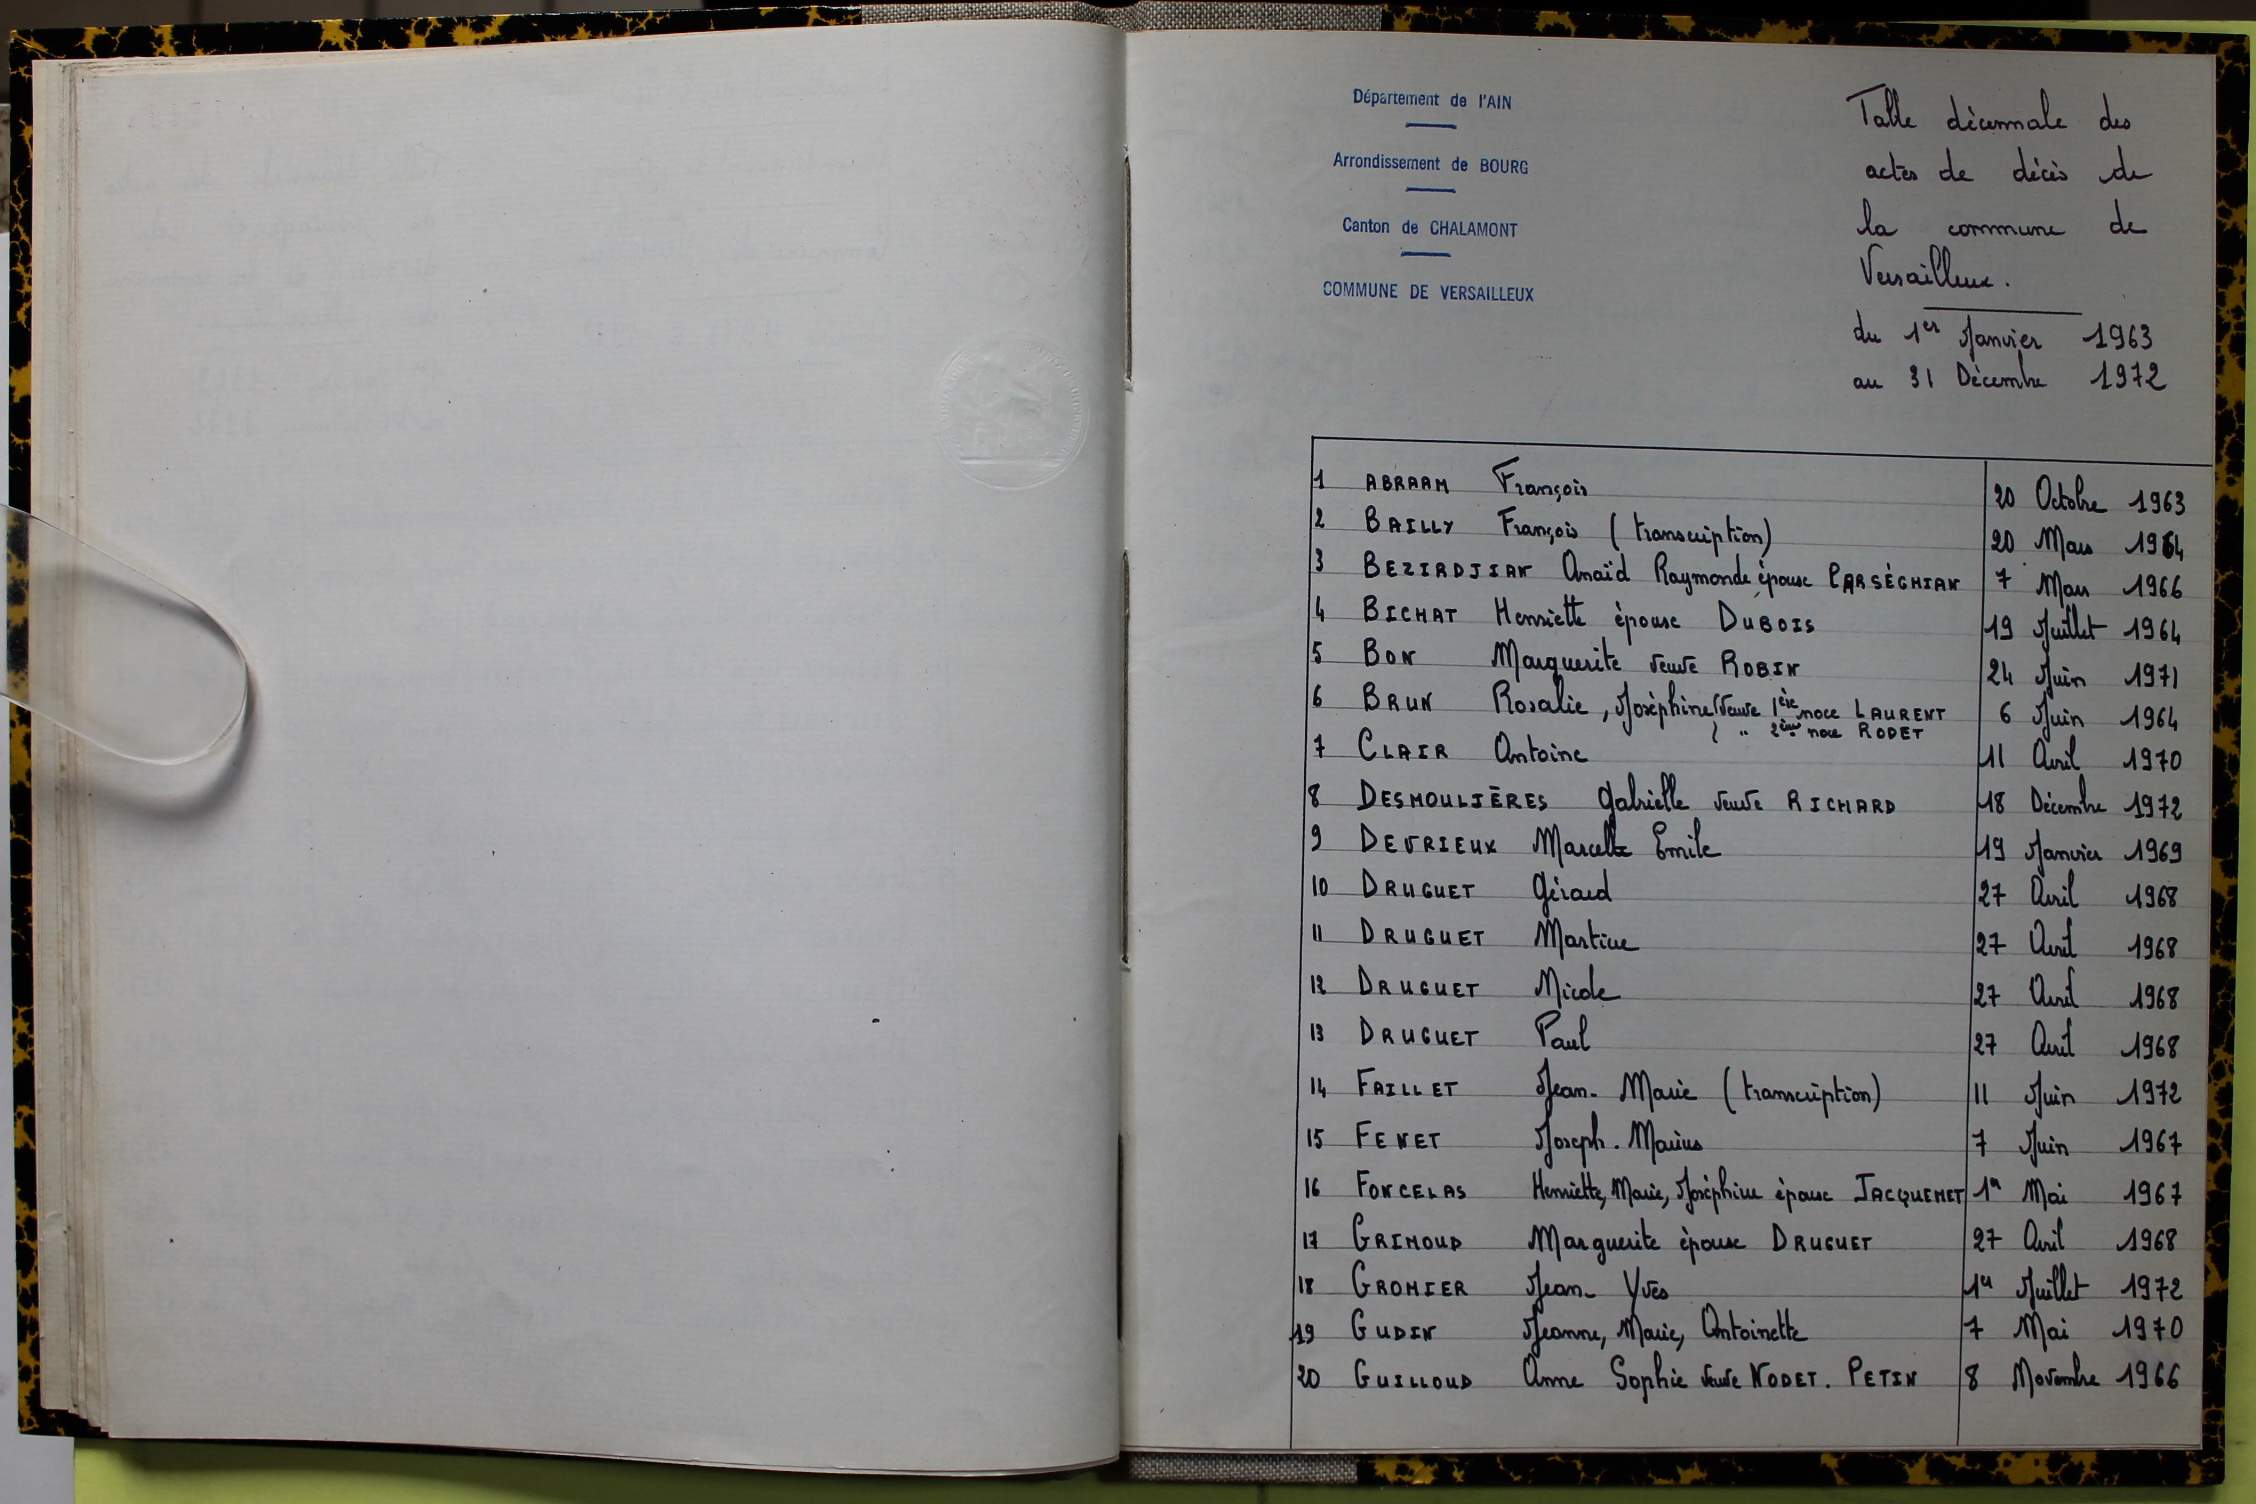 Département de l'AIN
Arrondissement de BOURG
Canton de CHALAMONT
COMMUNE DE VERSAILLEUX
Table décennale des
actes de décès de
la commune de
Versailleux.
du 1er Janvier 1963
au 31 Décembre 1972
1 ABRAAM François 20 Octobre 1963
2 BAILLY François (transcription) 20 Mars 1964
3 BEZIRDJIAN Anaïd Raymonde épouse PARSÉGHIAN 7 Mars 1966
4 BICHAT Henriette épouse DUBOIS 19 Juillet 1964
5 BON Marguerite veuve ROBIN 24 Juin 1971
6 BRUN Rosalie, Joséphine (veuve 1ère noce LAURENT 6 Juin 1964
( " 2ème noce RODET
7 CLAIR Antoine 11 Avril 1970
8 DESMOULIÈRES Gabrielle veuve RICHARD 18 Décembre 1972
9 DEVRIEUX Marcel Emile 19 Janvier 1969
10 DRUGUET Gérard 27 Avril 1968
11 DRUGUET Martine 27 Avril 1968
12 DRUGUET Nicole 27 Avril 1968
13 DRUGUET Paul 27 Avril 1968
14 FAILLET Jean-Marie (transcription) 11 Juin 1972
15 FENET Joseph-Marius 7 Juin 1967
16 FONCELAS Henriette, Marie, Joséphine épouse JACQUEMET 1er Mai 1967
17 GRIMOUD Marguerite épouse DRUGUET 27 Avril 1968
18 GROMIER Jean-Yves 1er Juillet 1972
19 GUDIN Jeanne, Marie, Antoinette 7 Mai 1970
20 GUILLOUD Anne Sophie veuve NODET-PETIN 8 Novembre 1966